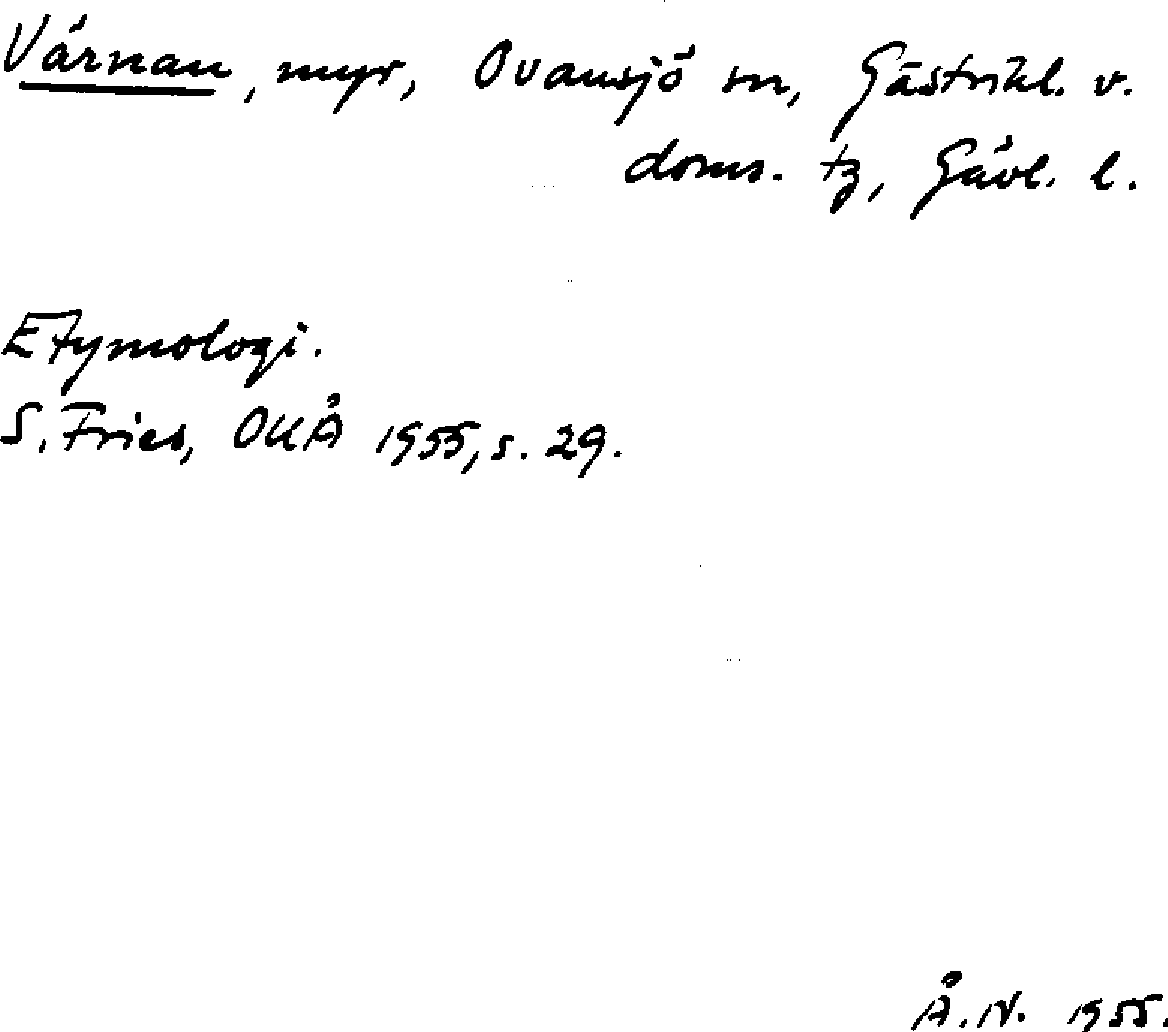 Värnan, myr, Ovansjö sn, Gästrikl. v.
doms. tg, Gävl. l.
Etymologi.
S. Fries, OUÅ 1955, s. 29.
Å. N. 1955.